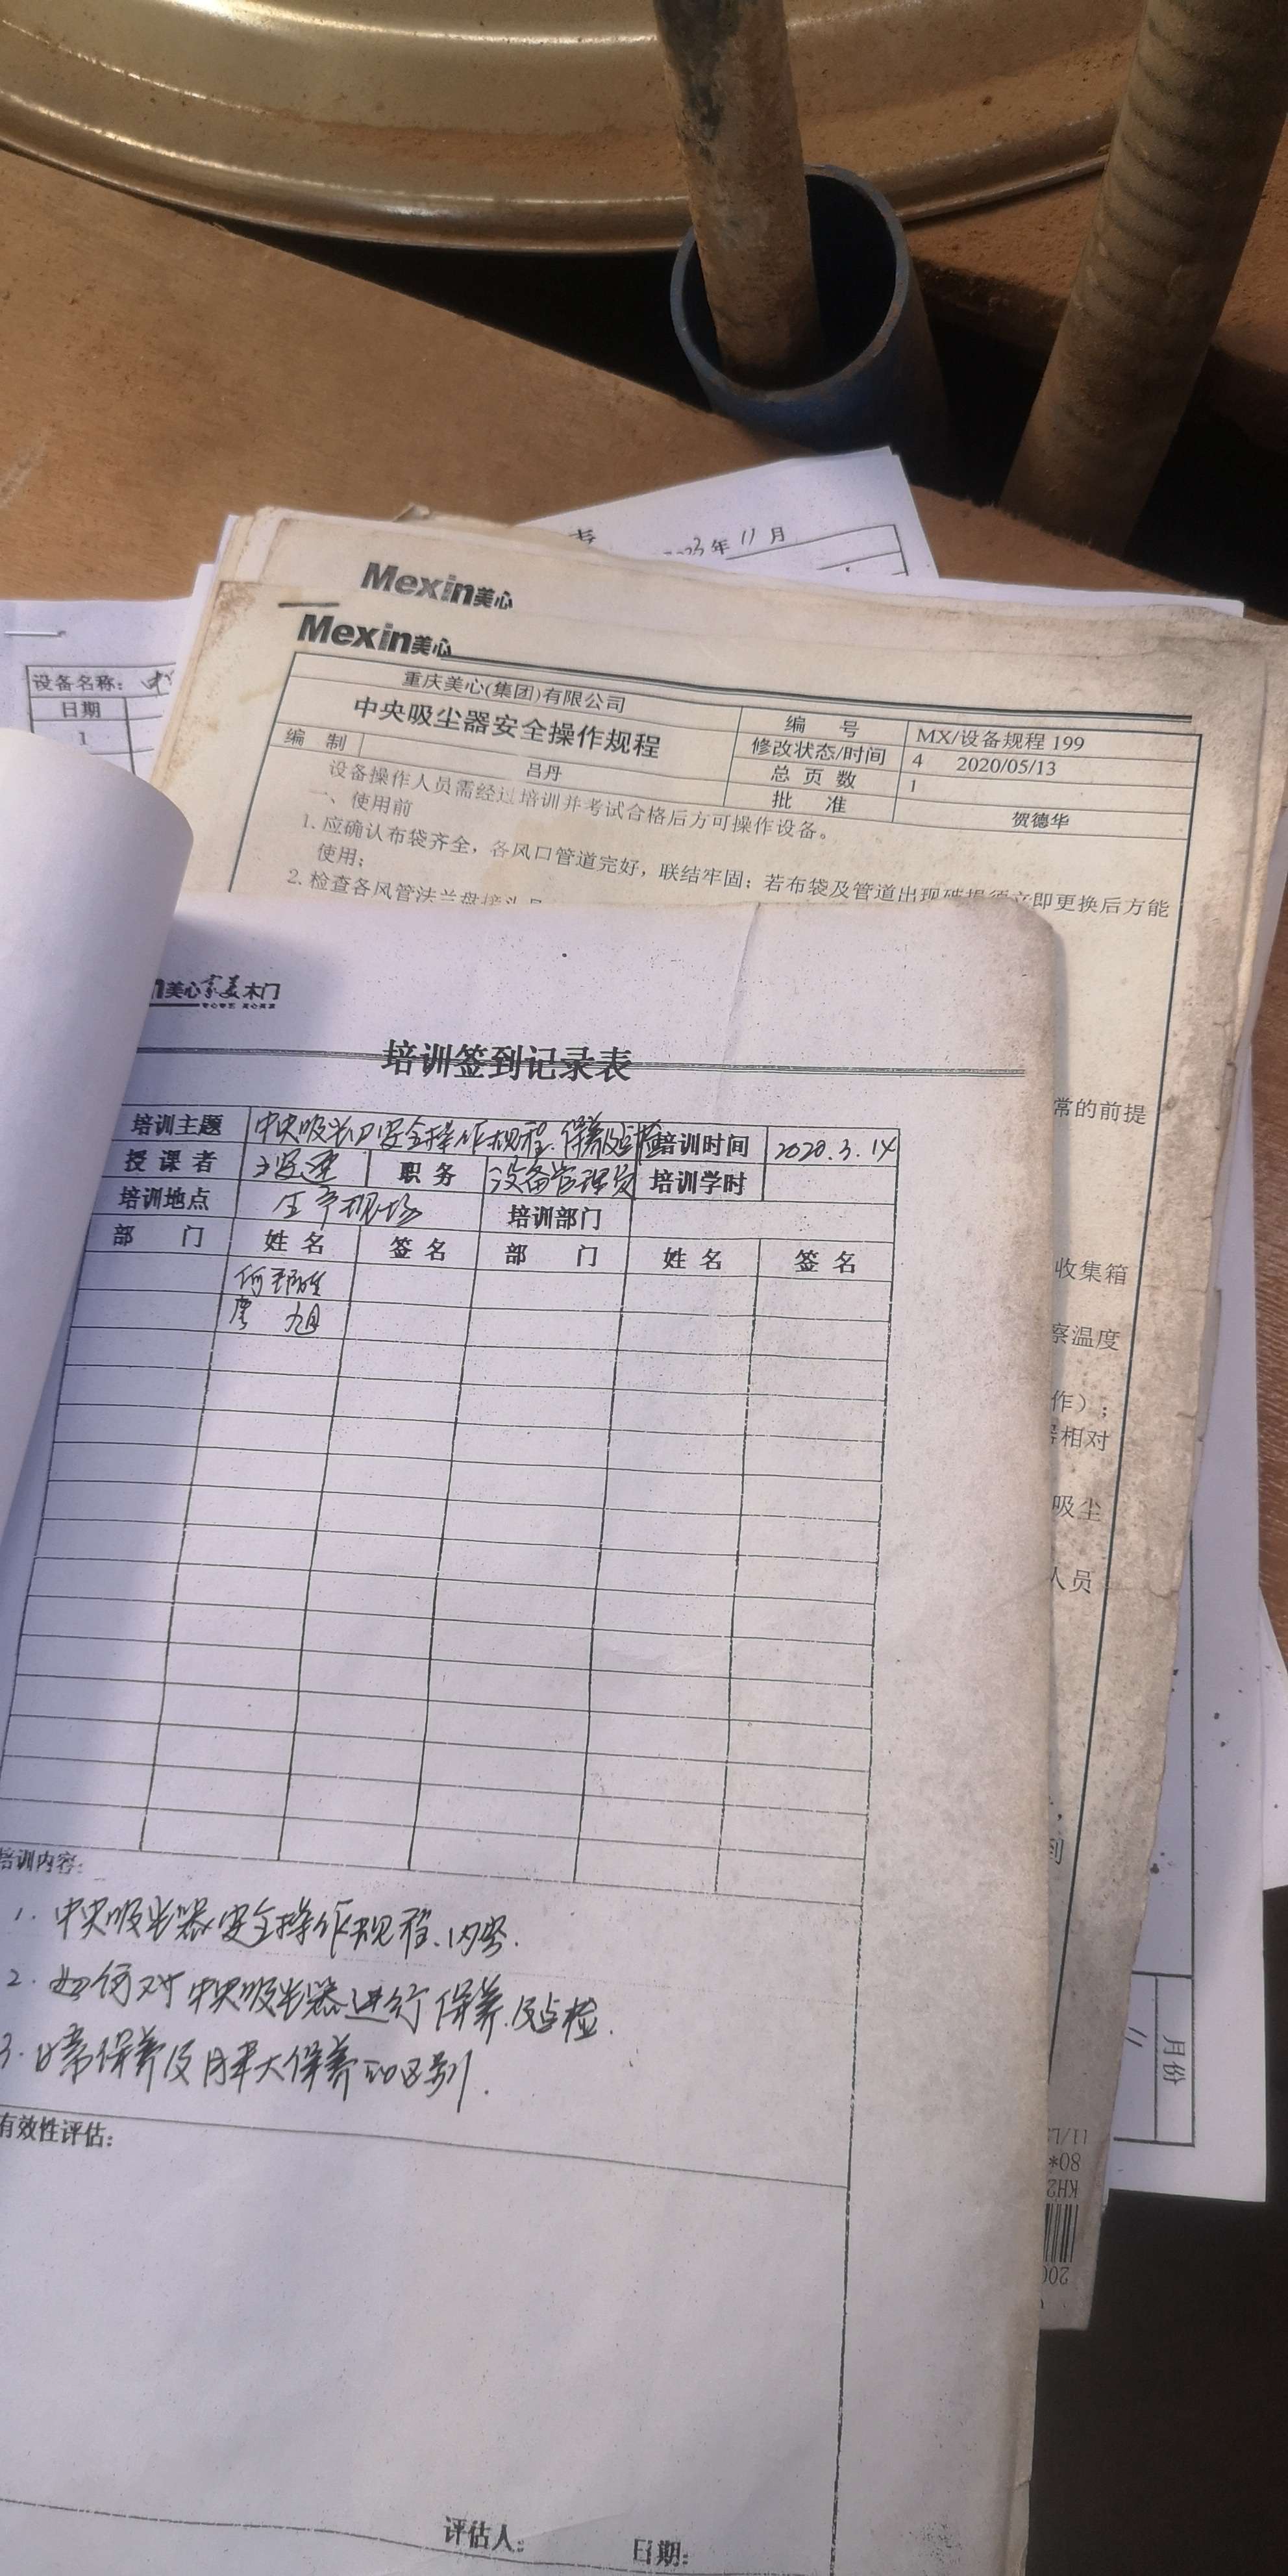 2023年11月
Mexin美心
Mexin美心
设备名称：
日期
1
重庆美心(集团)有限公司
中央吸尘器安全操作规程
编 号 MX/设备规程 199
修改状态/时间 4 2020/05/13
总 页 数 1
编 制 吕丹 批 准 贺德华
设备操作人员需经过培训并考试合格后方可操作设备。
一、使用前
1. 应确认布袋齐全，各风口管道完好，联结牢固；若布袋及管道出现破损须立即更换后方能
使用；
2. 检查各风管法兰盘接头
常的前提
收集箱
察温度
作）；
相对
吸尘
人员
美心家美木门
培训签到记录表
培训主题 中央吸尘口安全操作规程、保养及点检 培训时间 2020.3.14
授课者 职务 设备管理员 培训学时
培训地点 生产现场 培训部门
部 门 姓 名 签 名 部 门 姓 名 签 名
旭
培训内容：
1. 中央吸尘器安全操作规程、内容.
2. 如何对中央吸尘器进行保养.及点检.
3. 日常保养及周末大保养的区别.
有效性评估：
评估人： 日期：
月份
11
80*
KH2
200